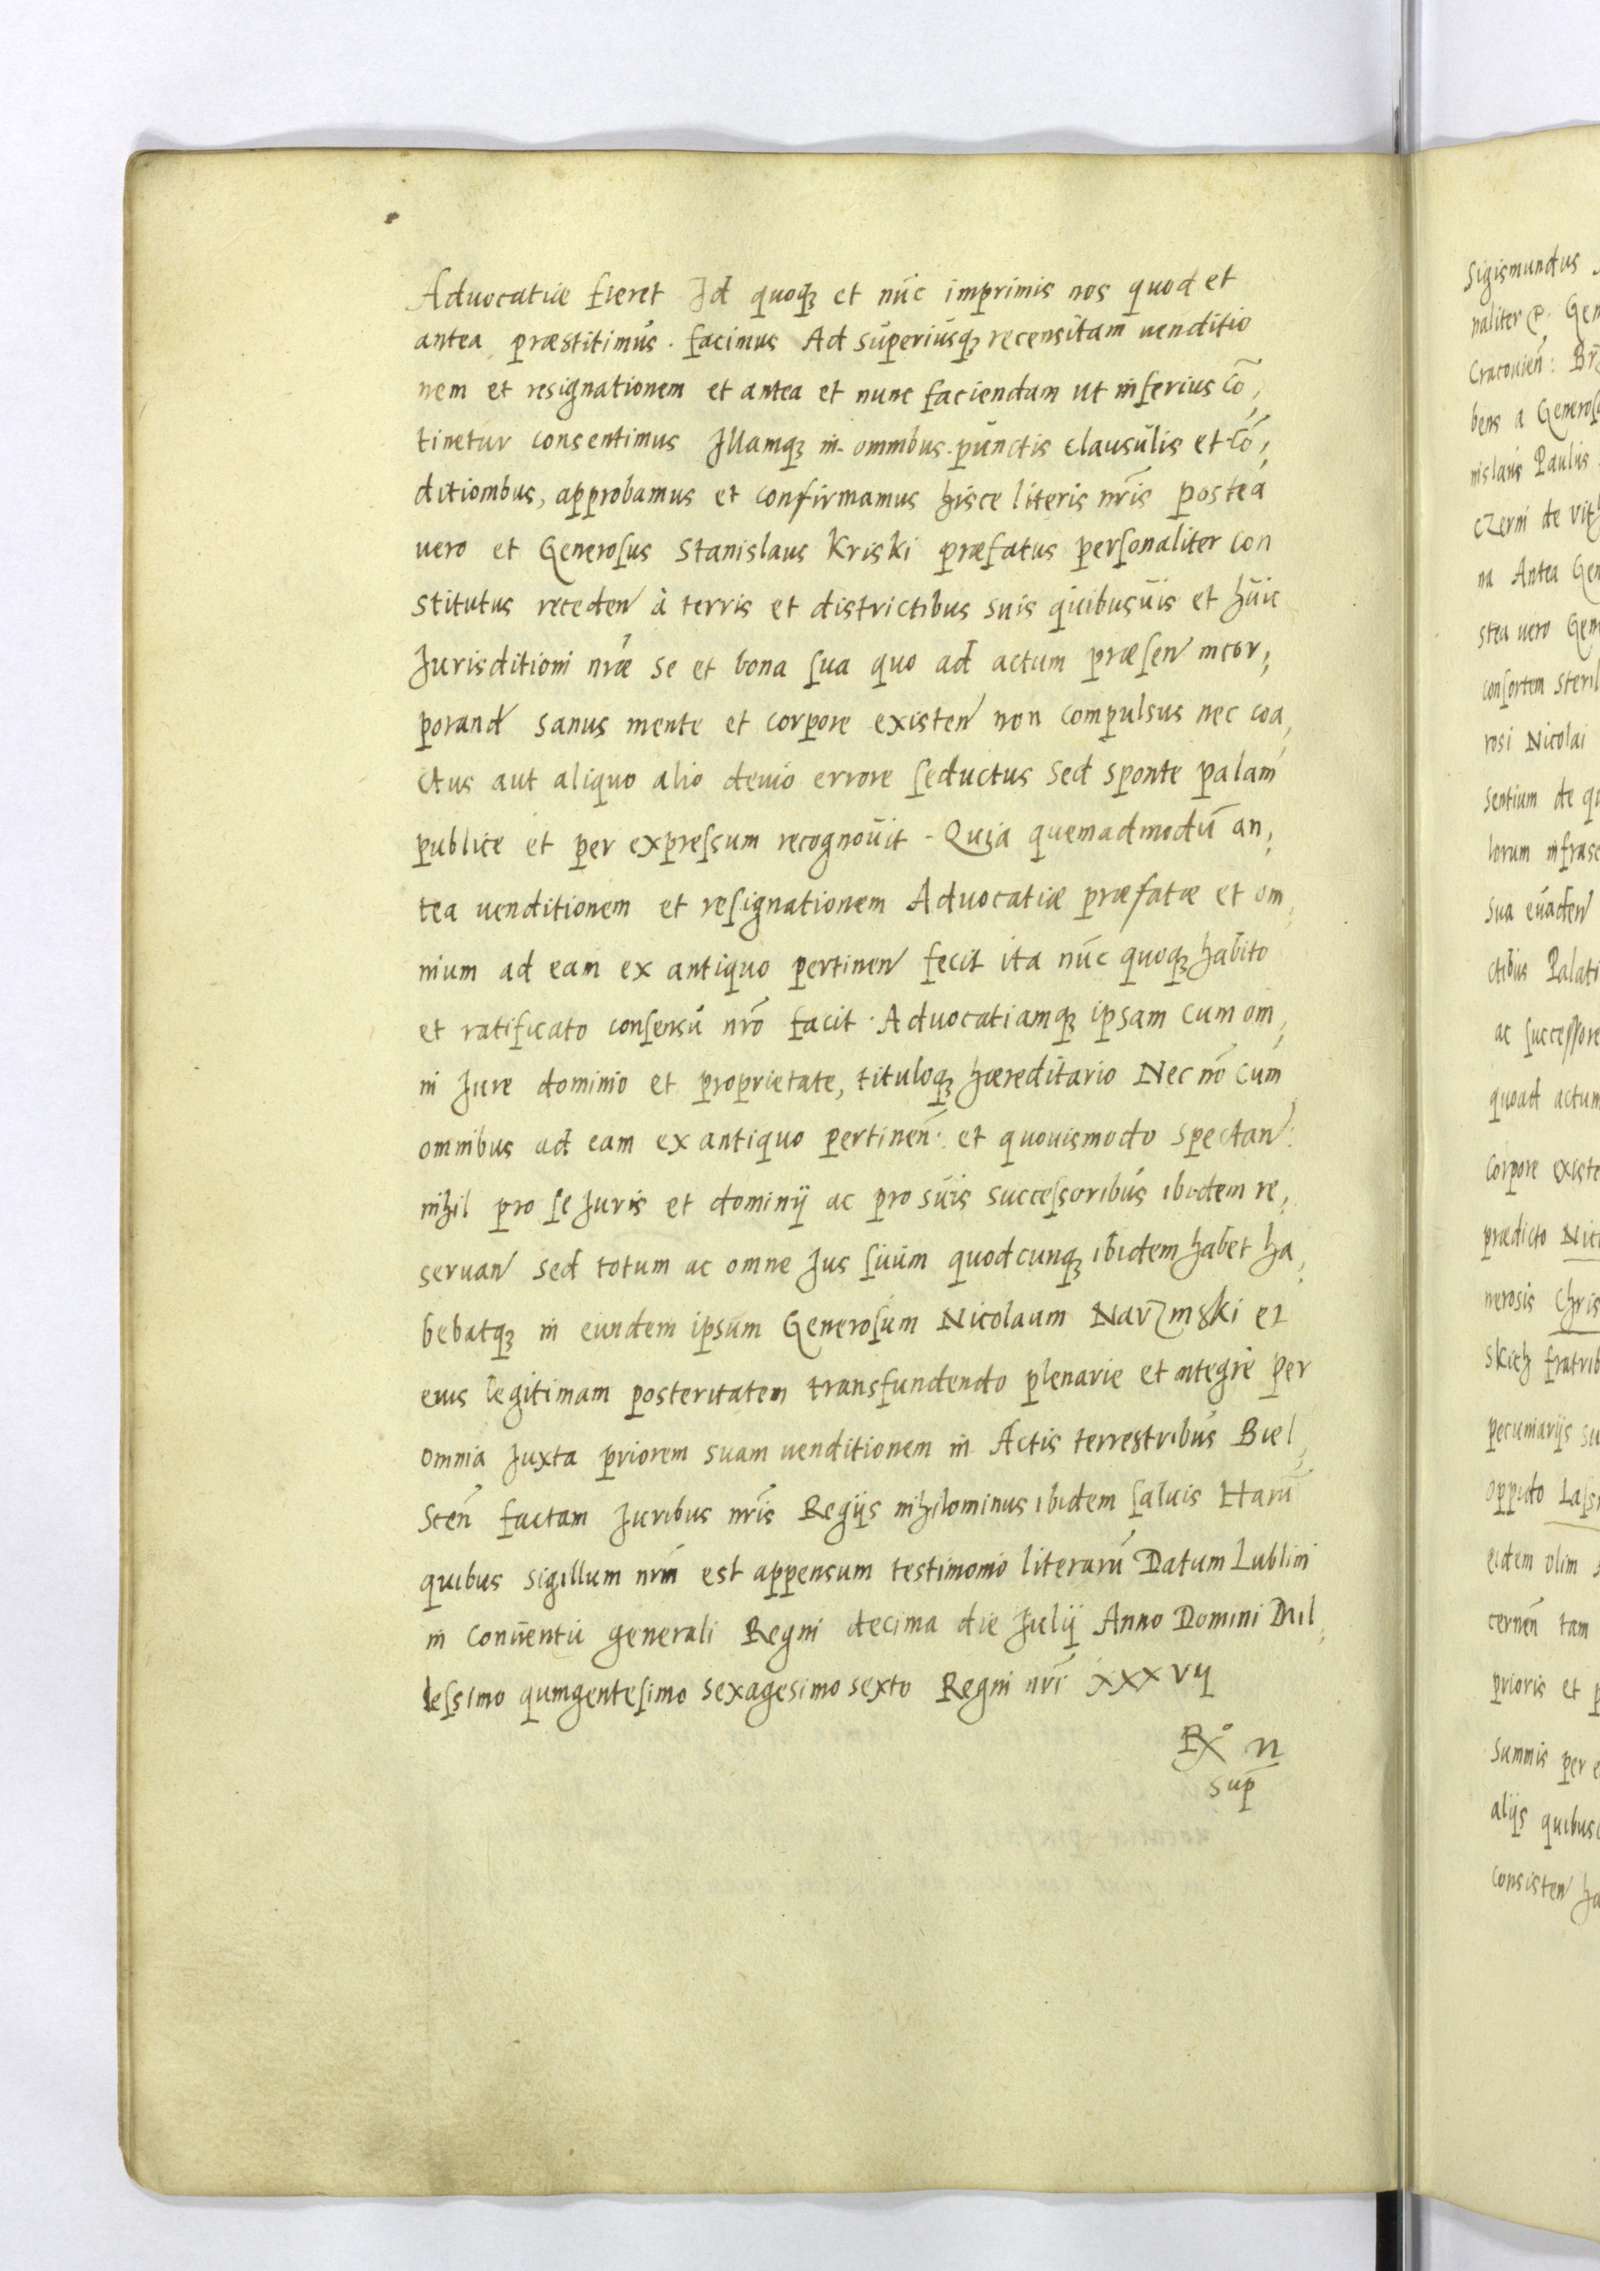 Advocatiæ fieret Id quoqȝ et nūc imprimis nos quod et
antea præstitimus . facimus Ad superiusqȝ recensitam venditio
nem et resignationem et antea et nunc faciendam ut inferius cō,
tinetur consentimus Illamqȝ in omnibus punctis clausulis et cō,
ditionibus, approbamus et confirmamus hisce literis nr̄is postea
vero et Generoſus Stanislaus Kriski præfatus perſonaliter con
stitutus receden̄ à terris et districtibus suis quibusuis et huic
Jurisditioni nr̄æ se et bona ſua quo ad actum præſen̄ incor,
porand̄ sanus mente et corpore existen̄ non compulsus nec coa,
ctus aut aliquo alio deuio errore ſeductus Sed sponte palam
publice et per expreſsum recognouit - Quia quemadmodū an,
tea venditionem et reſignationem Advocatiæ præfatæ et om,
nium ad eam ex antiquo pertinen̄ fecit ita nūc quoqȝ habito
et ratificato conſensu nr̄o facit . Advocatiamqȝ ipsam cum om,
ni Jure dominio et proprietate, tituloqȝ hæreditario Nec nō cum
omnibus ad eam ex antiquo pertinen̄: et quouismodo spectan̄:
nihil pro ſe Juris et dominij ac pro suis succeſsoribus ibidem re,
seruan̄ sed totum ac omne Jus ſuum quodcunqȝ ibidem habet ha,
bebatqȝ in eundem ipsum Generoſum Nicolaum Narzmski et
eius legitimam posteritatem transfundendo plenarie et integrè per
omnia Juxta priorem suam venditionem in Actis terrestribus Biel,
Scen̄ factam Juribus nr̄is Regijs nihilominus ibidem ſaluis Harū
quibus sigillum nr̄m est appensum testimonio literarū Datum Lublini
in Conuentu generali Regni decima die Julij Anno Domini Mil,
leſsimo quingenteſimo sexagesimo sexto Regni nr̄i XXXVIJ
Rº n
sup̄
Sigismundus
naliter
Cracouien̄:
bens a
nislaus Paulus
Czerni de
na Antea
stea vero
conſortem
rosi Nicolai
sentium de
lorum
sua euaden̄
ctibus
ac ſucceſſore
quoad actum
corpore
prædicto
nerosis
skich
pecuniarijs
oppido
eidem olim
cernen̄ tam
prioris et
summis per
alijs
consisten̄